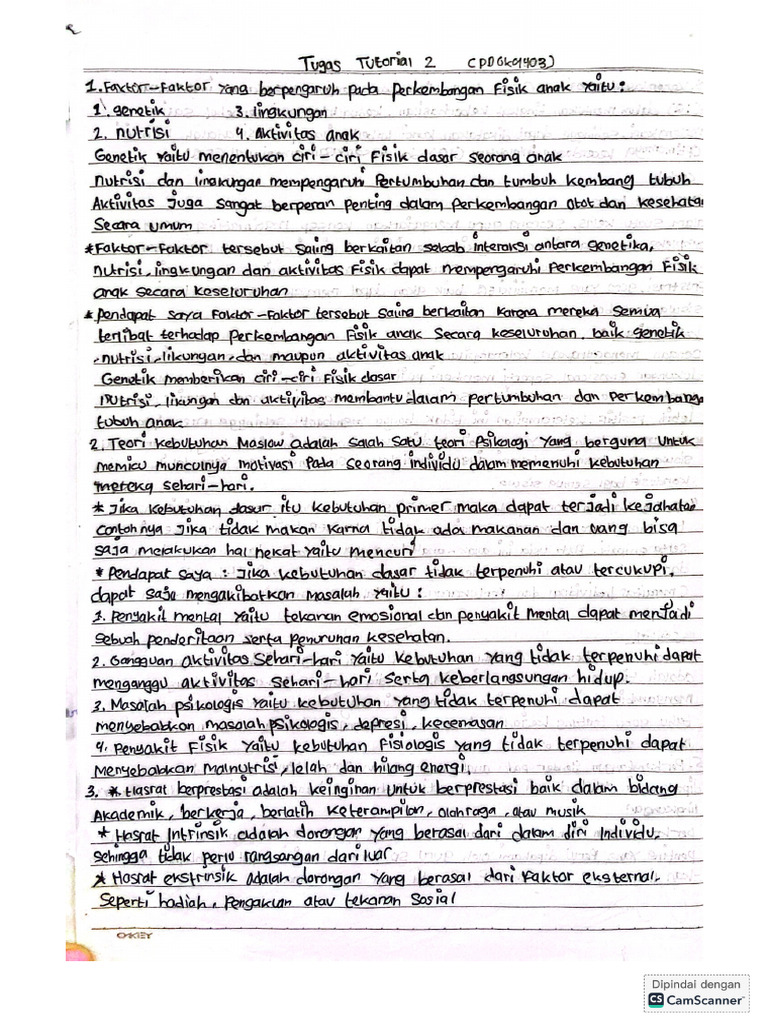 Tugas Tutorial 2 (PDGK4403)
1. Faktor-Faktor yang berpengaruh pada Perkembangan Fisik anak yaitu:
1. genetik 3. lingkungan
2. nutrisi 4. Aktivitas anak
Genetik yaitu menentukan ciri-ciri Fisik dasar seorang anak
nutrisi dan lingkungan mempengaruhi Pertumbuhan dan tumbuh kembang tubuh
Aktivitas Juga sangat berperan penting dalam Perkembangan otot dan kesehata
Secara umum
*Faktor-Faktor tersebut saling berkaitan sebab interaksi antara genetika,
nutrisi, lingkungan dan aktivitas Fisik dapat mempengaruhi Perkembangan Fisik
anak secara keseluruhan
*Pendapat saya Faktor-Faktor tersebut saling berkaitan karena mereka semua
terlibat terhadap perkembangan Fisik anak secara keseluruhan, baik genetik
,nutrisi, likungan, dan maupun aktivitas anak
Genetik memberikan ciri-ciri Fisik dasar
Nutrisi, likungan dan aktivitas membantu dalam pertumbuhan dan perkembanga
tubuh anak.
2. Teori kebutuhan Maslow adalah salah satu teori Psikologi yang berguna untuk
memicu munculnya motivasi Pada seorang individu dalam memenuhi kebutuhan
mereka sehari-hari.
* Jika kebutuhan dasar itu kebutuhan primer maka dapat terjadi kejahatan
contohnya Jika tidak makan karna tidak ada makanan dan uang bisa
saja melakukan hal nekat yaitu mencuri
*Pendapat saya : Jika kebutuhan dasar tidak terpenuhi atau tercukupi,
dapat saja mengakibatkan masalah yaitu :
1. Penyakit mental yaitu tekanan emosional dan penyakit Mental dapat menjadi
sebuah penderitaan serta penurunan kesehatan.
2. Gangguan aktivitas sehari-hari yaitu kebutuhan yang tidak terpenuhi dapat
menganggu aktivitas sehari-hari serta keberlangsungan hidup.
3. Masalah psikologis yaitu kebutuhan yang tidak terpenuhi dapat
menyebabkan masalah psikologis, depresi, kecemasan
4. Penyakit Fisik yaitu kebutuhan fisiologis yang tidak terpenuhi dapat
Menyebabkan malnutrisi, lelah dan hilang energi.
3. * Hasrat berprestasi adalah keinginan untuk berprestasi baik dalam bidang
Akademik, berkerja, berlatih keterampilan, olahraga, atau musik
* Hasrat Intrinsik adalah dorongan yang berasal dari dalam diri Individu,
sehingga tidak perlu rangsangan dari luar
* Hasrat ekstrinsik adalah dorongan yang berasal dari Faktor eksternal,
Seperti hadiah, Pengakuan atau tekanan Sosial
OKEY
Dipindai dengan
CS CamScanner